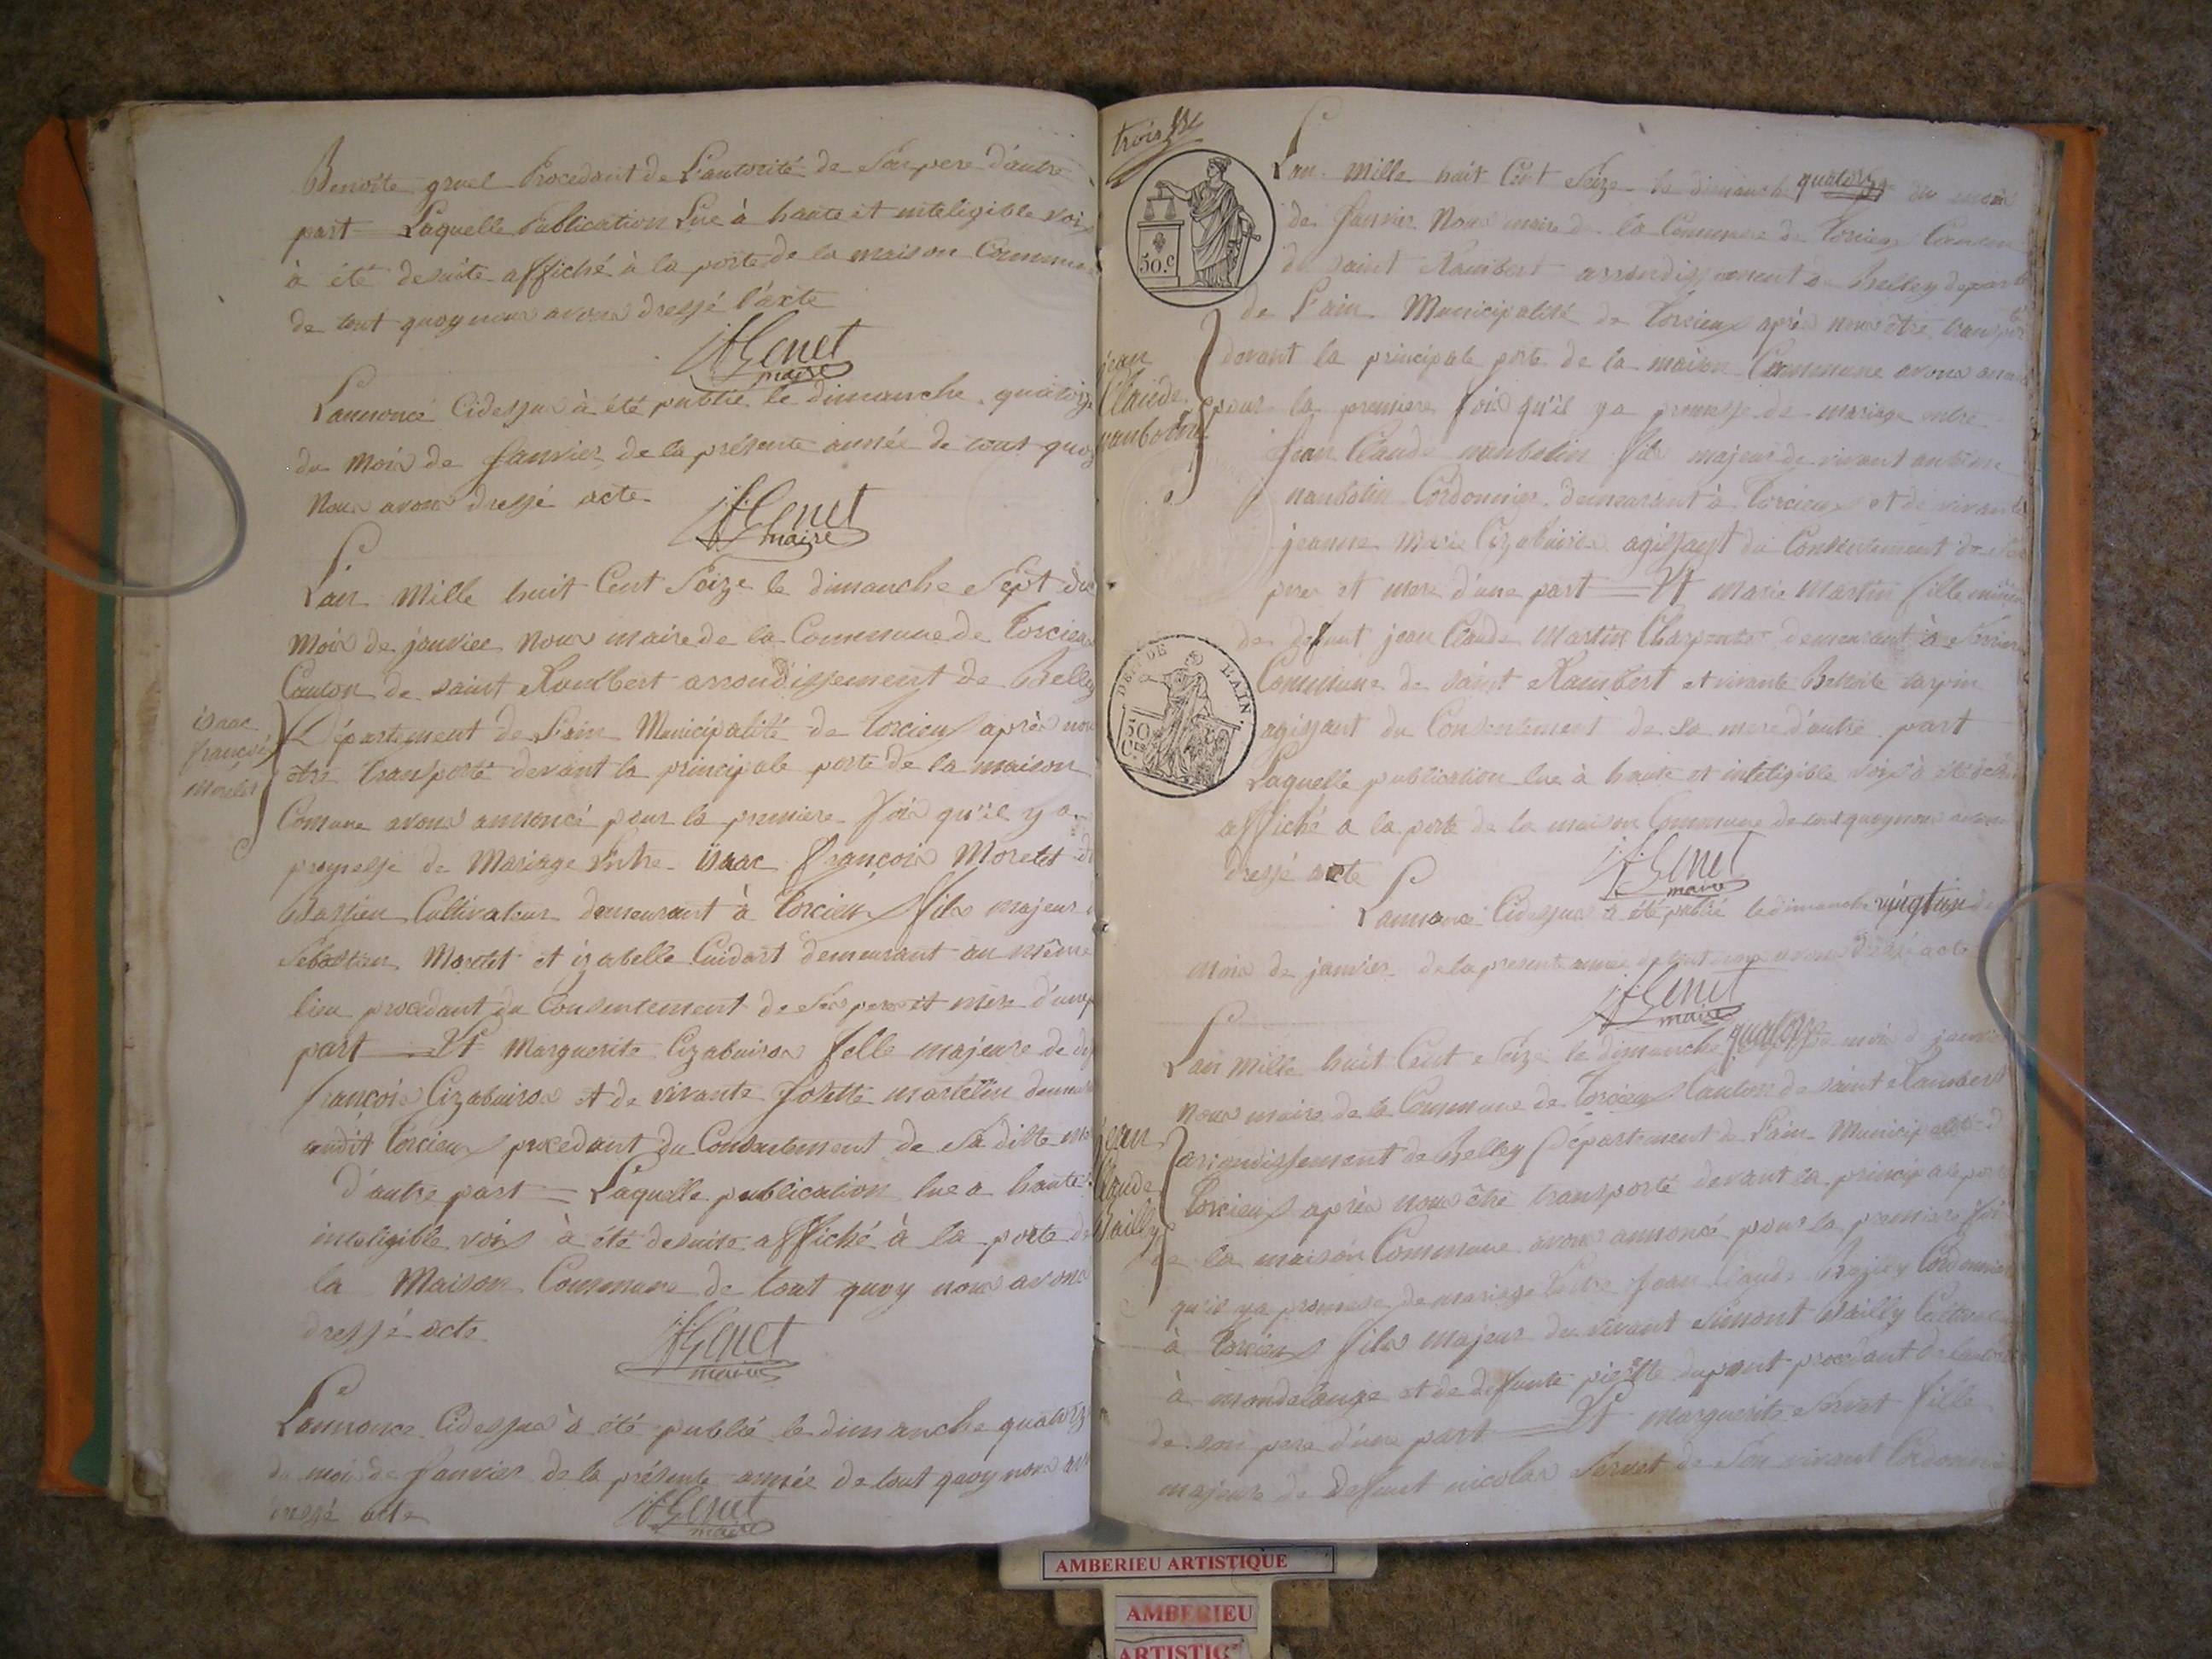 Benoite gruel Procedant de L'autorité de Son pere d'autre
part = Laquelle Publication Lue à haute et inteligible voix
à été desuite affiché à la porte de la maison Commune
de tout quoy nous avons dressé l'acte
JH Genet
maire
L'annonce Cidessus à été publié le dimanche quatorze
du mois de Janvier de la présente année de tout quoy
Nous avons dressé acte
JH Genet
maire
L'an Mille huit Cent Seize le dimanche Sept du
Mois de janvier Nous maire de la Commune de Torcieux
Canton de saint Rambert arrondissement de Belley
isaac
françois
Moretet
Département de L'ain Municipalité de Torcieux après nous
être transporté devant la principale porte de la maison
Comune avons annoncé pour la premiere fois qu'il y a
promesse de Mariage Entre isaac françois Moretet dit
Bastien Cultivateur demeurant à Torcieux fils majeur de
Sebastien Moretet et izabelle Cuidart demeurant au même
lieu procedant du Consentement de Ses pere et mere d'une
part = Et Marguerite Cizabuiron fille majeure de
françois Cizabuiron et de vivante Josette martelin
audit Torcieux procedant du Consentement de Sa ditte
d'autre part = Laquelle publication lue a haute
inteligible voix à été desuite affiché à la porte de
la Maison Commune de tout quoy nous avons
dressé acte
JH Genet
maire
L'annonce Cidessus à été publié le dimanche quatorze
du mois de Janvier de la présente année de tout quoy nous
dressé acte
JH Genet
maire
trois
50.c
L'an Mille huit Cent Seize le dimanche quatorze du mois
de Janvier Nous maire de la Commune de Torcieux Canton
de saint Rambert arrondissement de Belley
de L'ain Municipalité de Torcieux après nous être
jean
Claude
nanbotin
devant la principale porte de la maison Commune avons
pour la premiere fois qu'il y a promesse de mariage entre
Jean Claude nanbotin fils majeur de vivant antoine
nanbotin Cordonnier demeurant à Torcieux et de vivante
jeanne Marie Cizabuiron agissant du Consentement de
pere et mere d'une part = Et Marie Martin fille
DEPT DE L'AIN.
50
de defunt jean Claude Martin Charpentier demeurant à
Commune de saint Rambert et vivante Benoite
agissant du Consentement de sa mere d'autre part
Laquelle publication lue à haute et inteligible voix à été
affiché a la porte de la maison Commune de tout quoy nous avons
dressé acte
JH Genet
maire
L'annonce Cidessus à été publié le dimanche vingtun
mois de janvier de la presente année de tout avons dressé acte
JH Genet
maire
L'an Mille huit Cent Seize le dimanche quatorze mois de
Nous maire de la Commune de Torcieux Canton de saint Rambert
jean
Claude
arrondissement de Belley Département de L'ain Municipalité
Torcieux après nous être transporté devant la principale
de la maison Commune avons annoncé pour la premiere
qu'il y a promesse de mariage Entre Jean Claude Cordonnier
à Torcieux fils majeur de vivant Simont
à et de deffunte dupont procedant de
de son pere d'une part = Et marguerite Servet fille
majeure de Deffunt nicolas Servet de Son vivant Cordonnier
AMBERIEU ARTISTIQUE
AMBERIEU